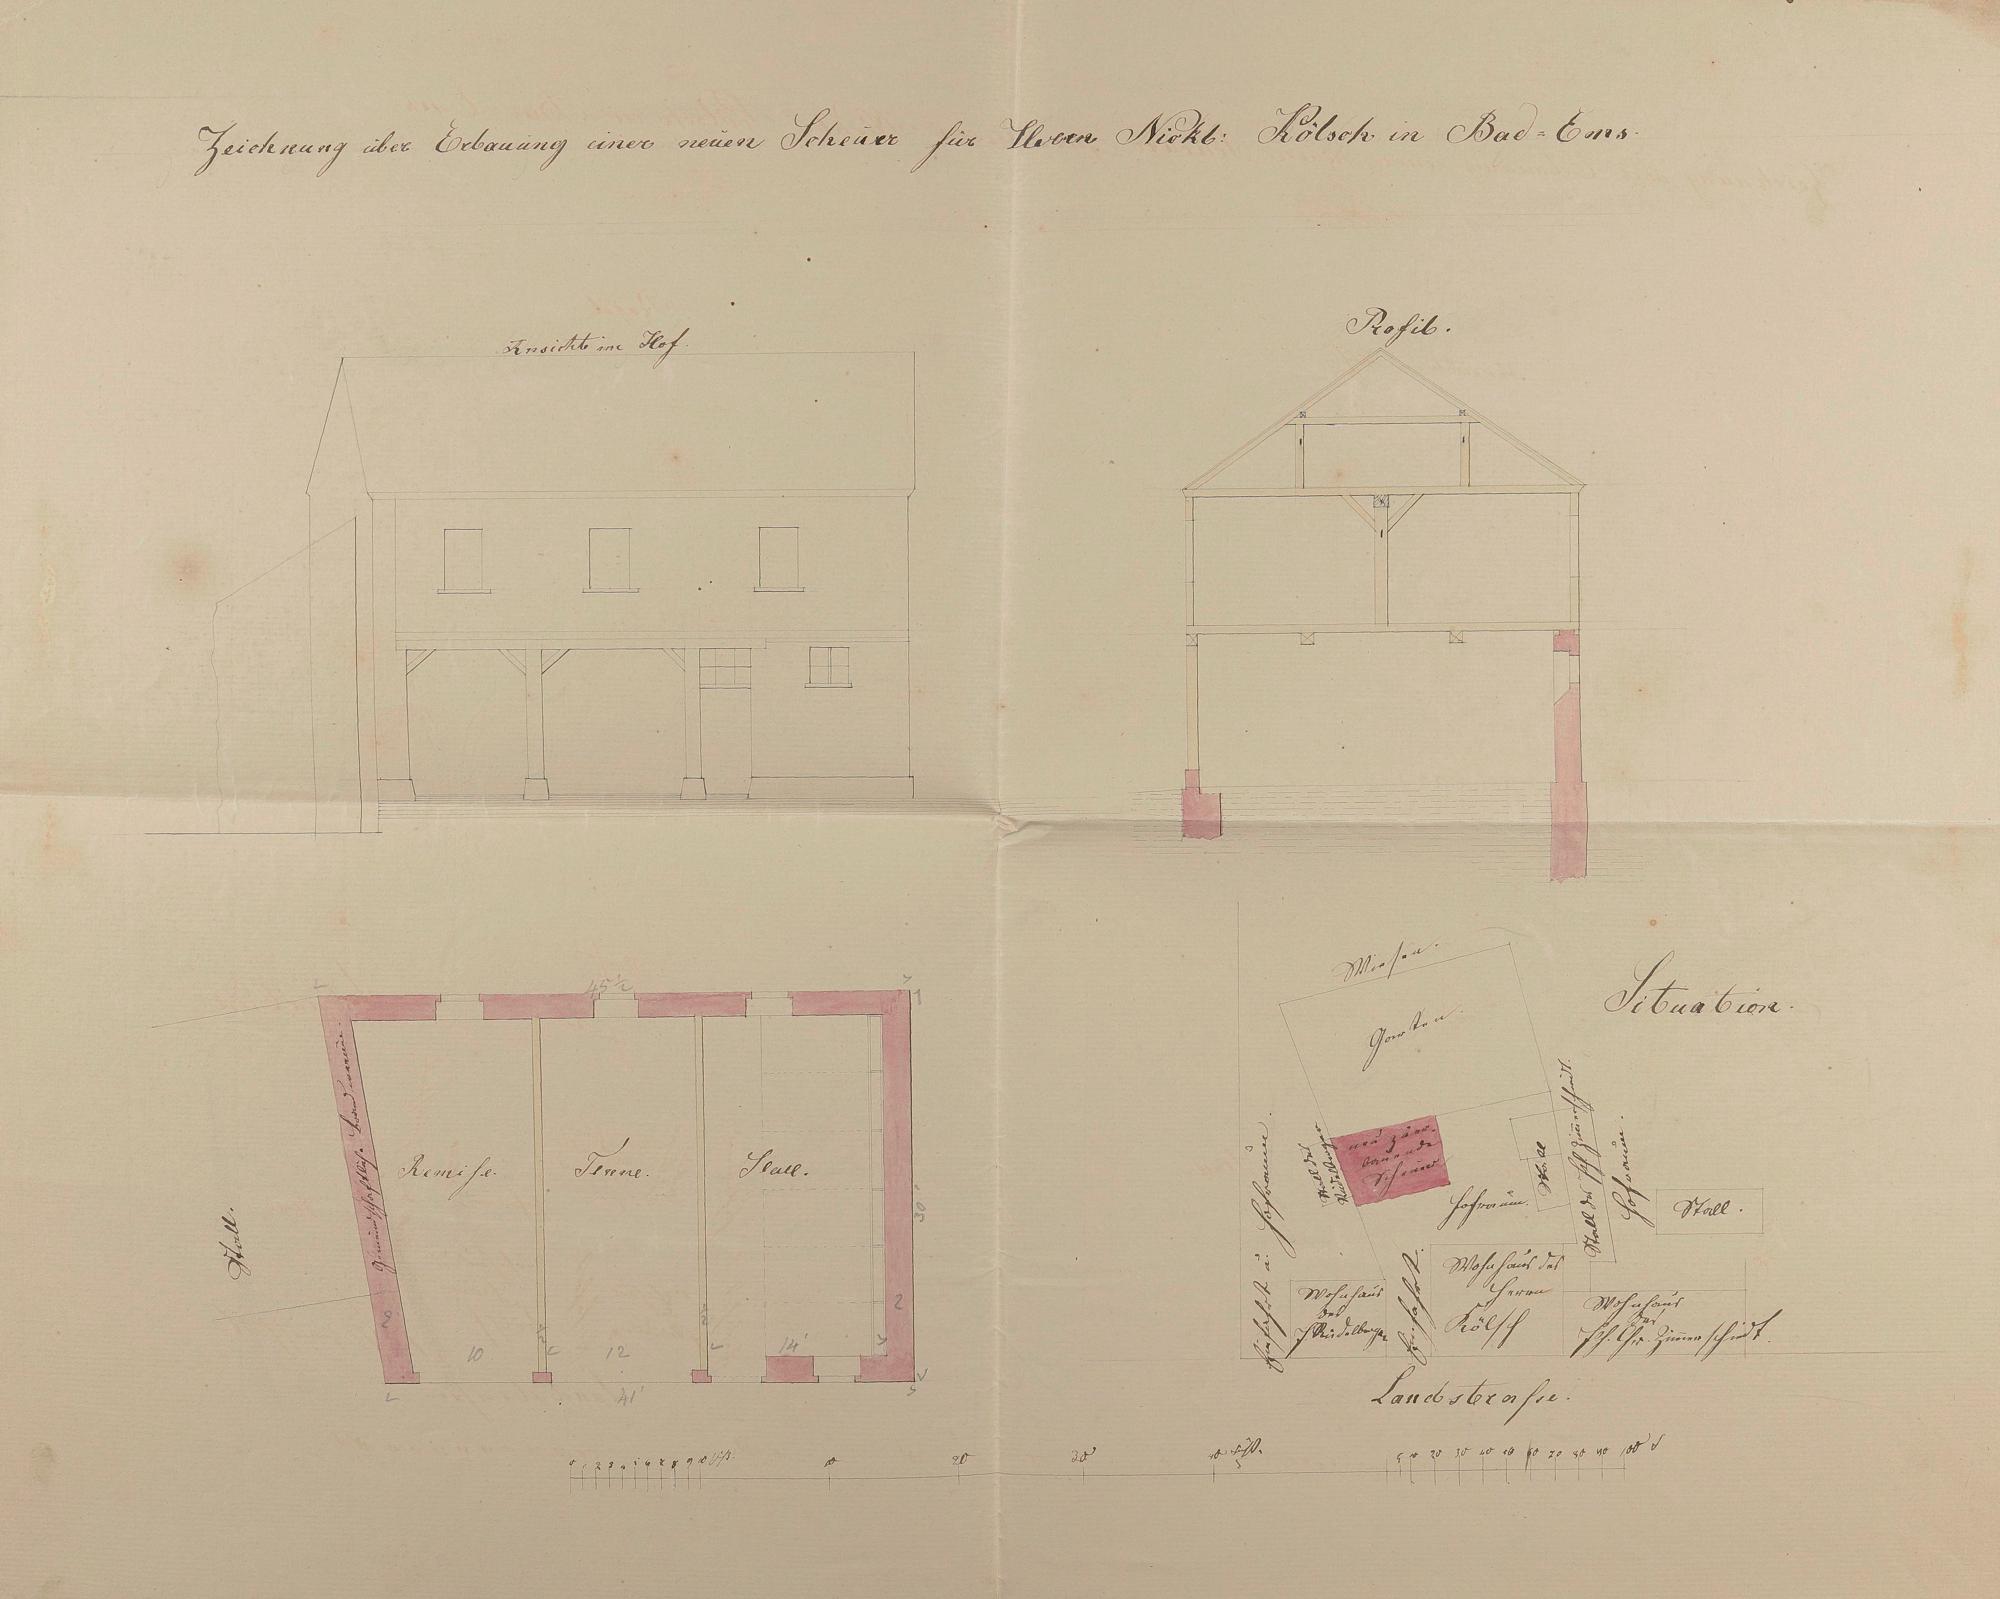 Zeichnung über Erbauung einer neuen Scheuer für Herrn Nickl: Kölsch in Bad=Ems.
Ansicht im Hof.
Profil.
45½
Remise.
Tenne.
Stall.
Stall.
30'
2
2
10
12
14'
41'
Situation.
Wiesen.
Garten.
neu zu er-
bauende
Scheuer
Stall des
Hofraum.
Stall
Hofraum.
Stall.
Einfahrt u: Hofraum.
Wohnhaus
des
Einfahrt.
Wohnhaus des
Herrn
Kölsch
Wohnhaus
des
Ph. Chr. Zimmerschiedt.
Landstrasse.
0 1 2 3 4 5 6 7 8 9 10 Fuß.
10
20
30
40 Fuß.
5 10 20 30 40 50 60 70 80 90 100